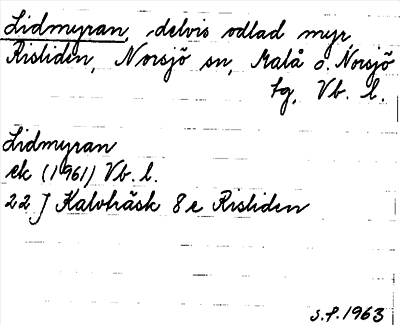 Lidmyran, delvis odlad myr
Risliden, Norsjö sn, Malå o. Norsjö
tg, Vb. l.
Lidmyran
ek (1961) Vb. l.
22 J Kalvträsk 8 e Risliden
s.f. 1963